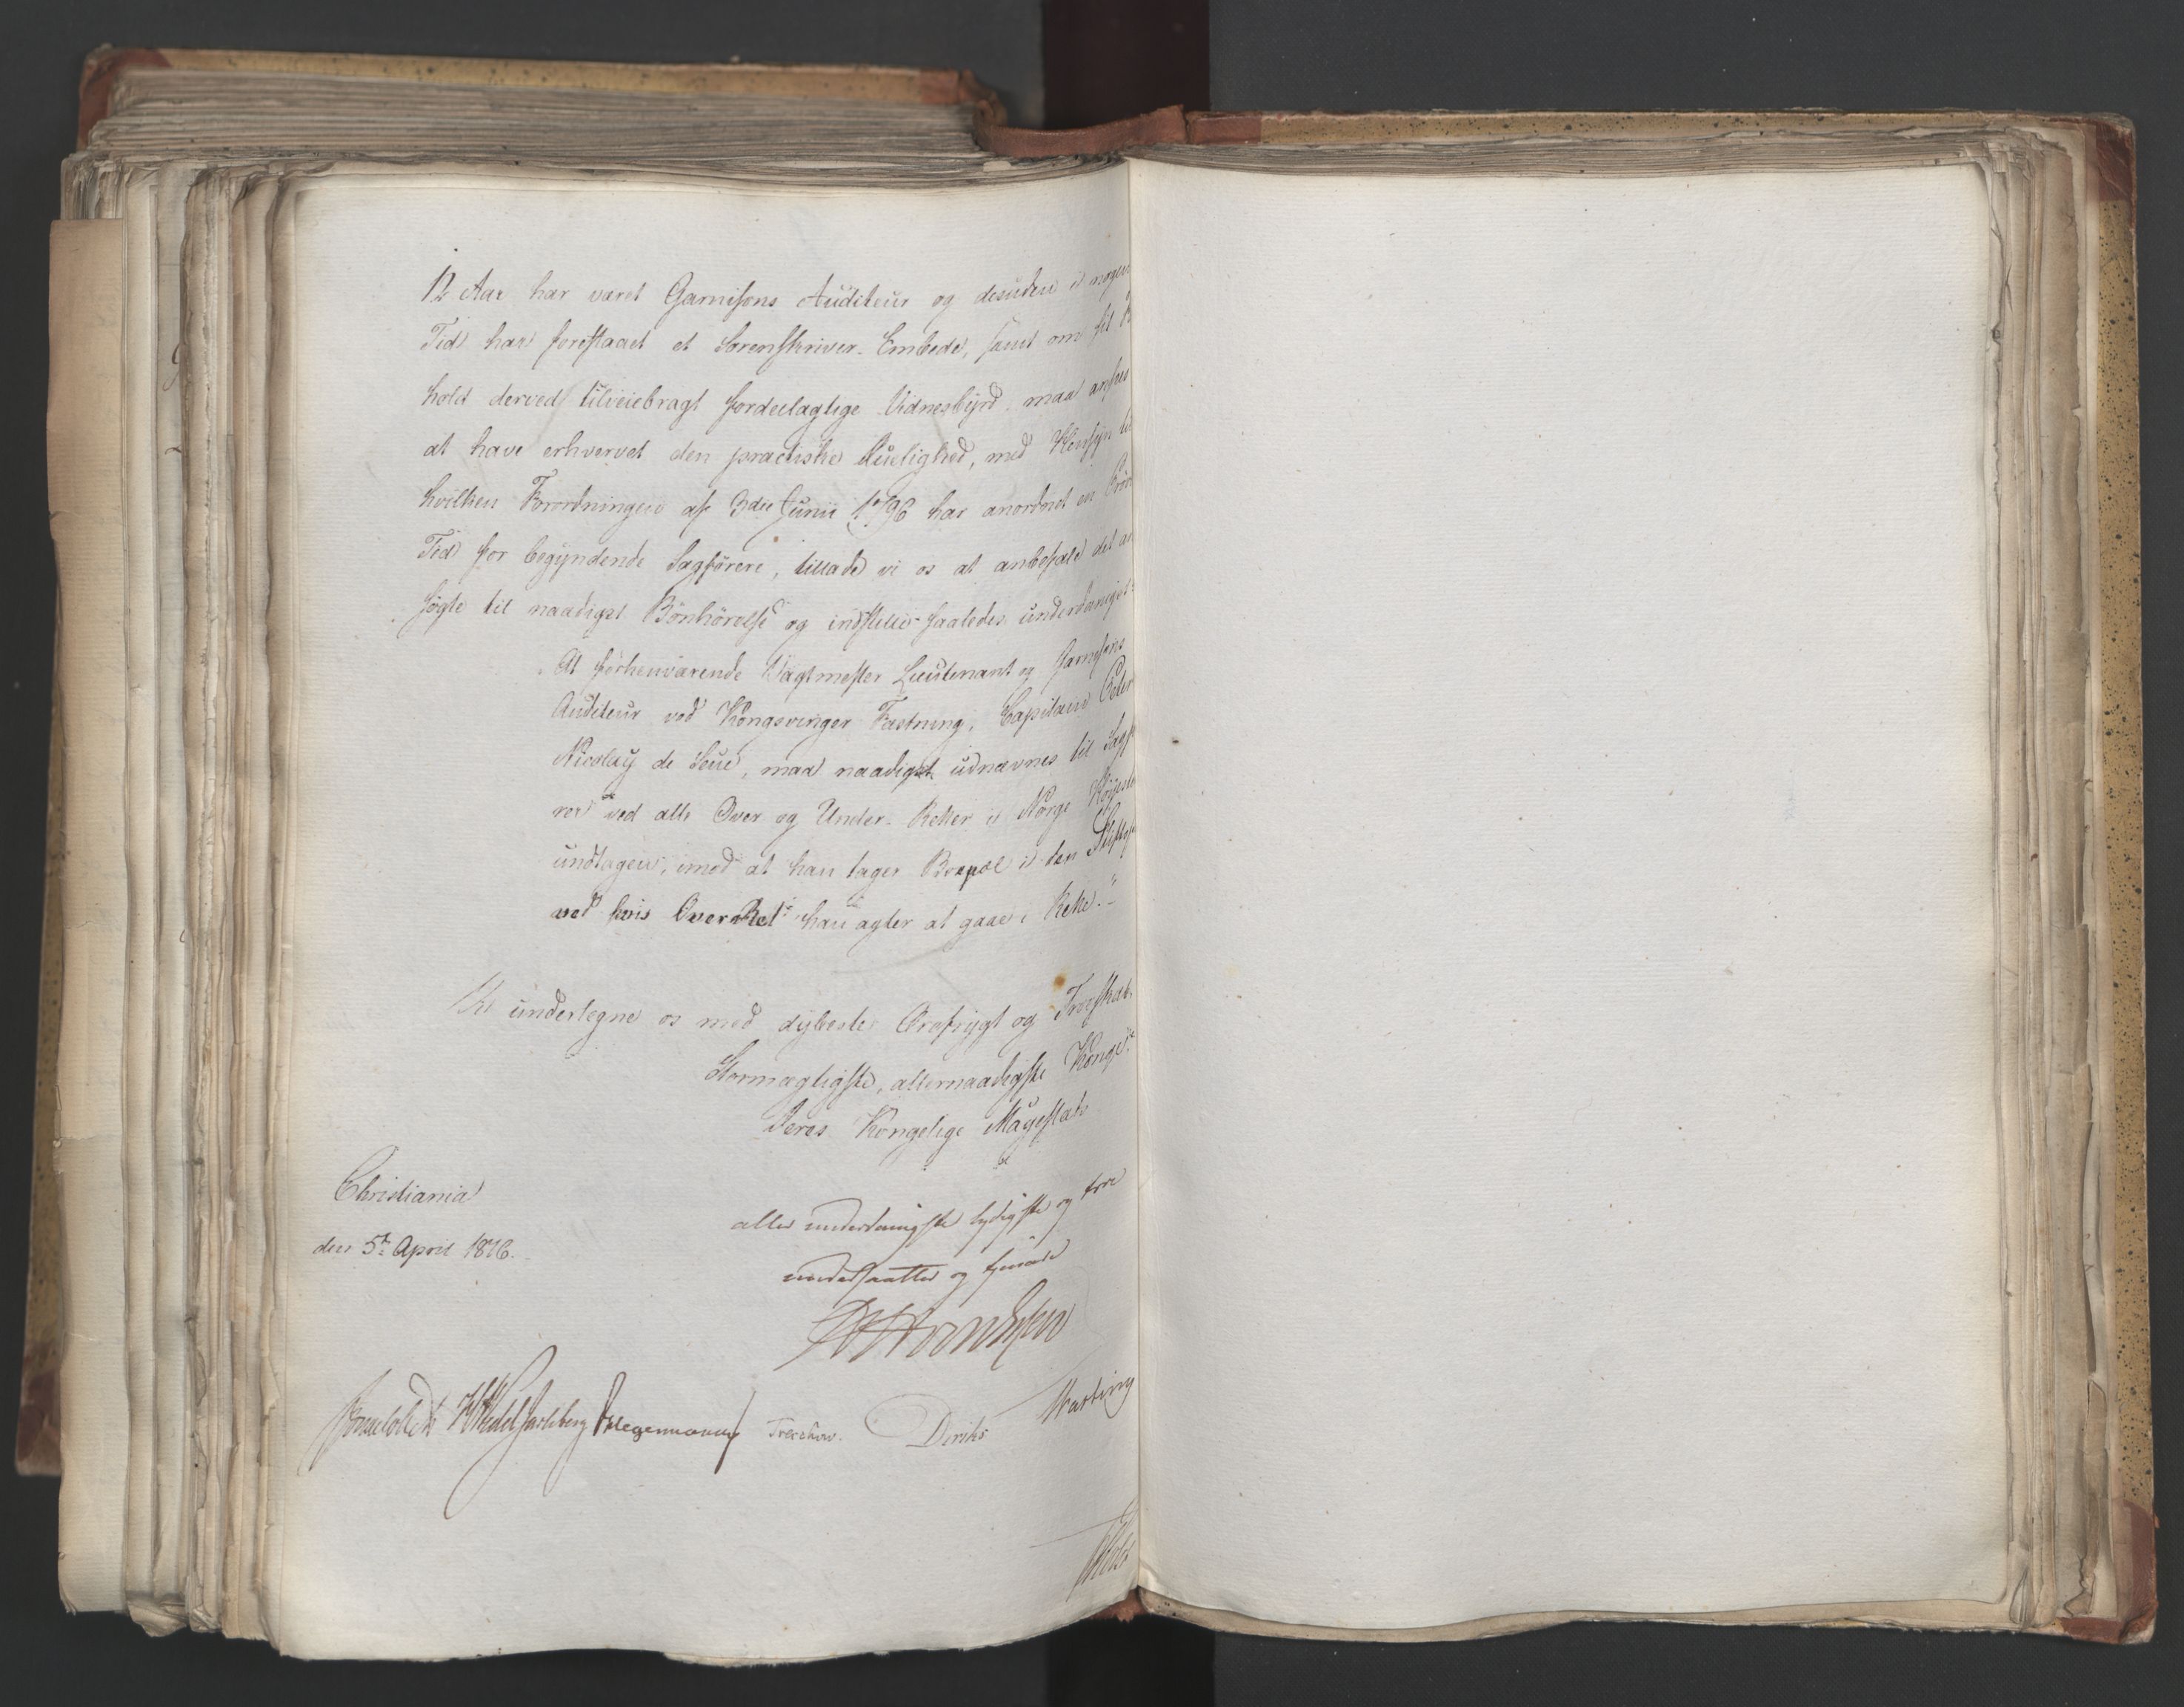 12 Aar har været Garnisons Auditeur og desuden i nogen
Tid har forestaaet et Sorenskriver-Embede, samt om sit
hold derved tilveiebragt fordeelagtige Vidnesbyrd, maa ansees
at have erhvervet den practiske Duelighed, med Hensyn til
hvilken Forordningen af 3die Junii 1796 har anordnet en Prøve
Tid for begyndende Sagførere, tillade vi os at anbefale det an
søgte til naadigst Bønhørelse og indstille saaledes underdanigst:
At forhenværende Vagtmester Lieutenant og Garnisons
Auditeur ved Kongsvinger Fæstning, Capitain Peter
Nicolay de Seue, maa naadigst udnævnes til Sagfø
rer ved alle Over og Under-Retter i Norge Høieste
undtagen, imod at han tager Bopæl i den Stiftsp
ved hvis OverRet han agter at gaae i Rette."
Vi undertegne os med dybeste Ærefrygt og Troeskab.
Stormægtigste, allernaadigste Konge!
Deres Kongelige Majestæts
Christiania
den 5te April 1816.
aller underdanigste lydigste og troe
undersaatter og tjenere
Sommerfeldt HWedel Jarlsberg DHegermann Treschow. Diriks